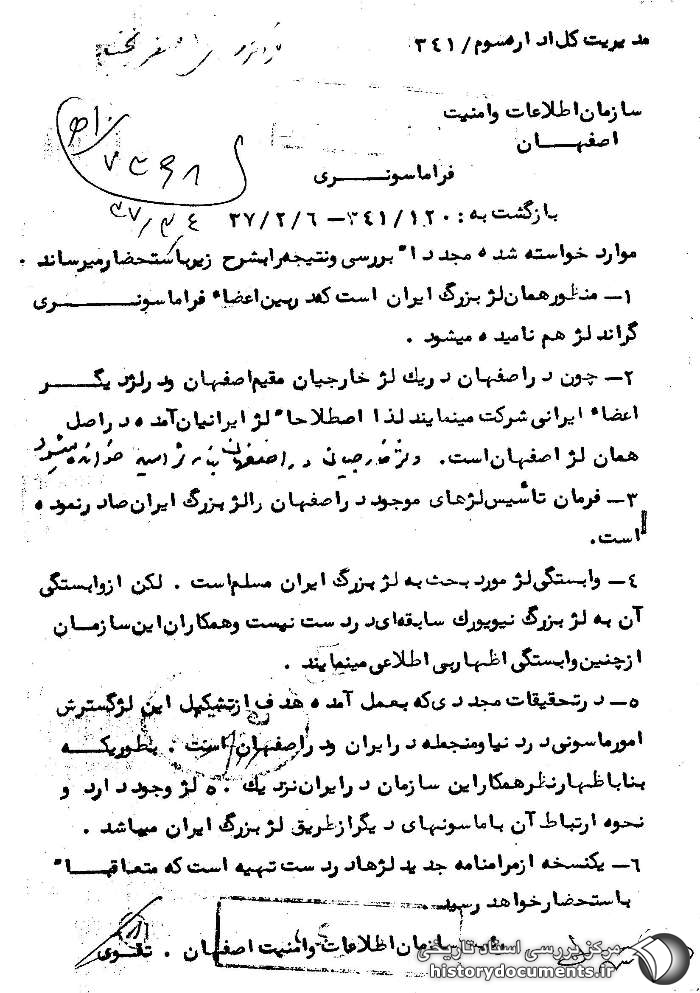 مدیریت کل اداره سوم / ۳۴۱
سازمان اطلاعات و امنیت
اصفهــان
فراماسونــری
۷۳۶۸
بازگشت به : ۳۴۱/۱۲۰ – ۳۷/۲/۶
موارد خواسته شده مجدداً بررسی و نتیجه را بشرح زیر باستحضار میرساند .
۱– منظور همان لژ بزرگ ایران است که در بین اعضاء فراماسونــری
گراند لژ هم نامیده میشود .
۲– چون در اصفهان در یک لژ خارجیان مقیم اصفهان و در لژ دیگــر
اعضاء ایرانی شرکت مینمایند لذا اصطلاحاً لژ ایرانیان آمده در اصل
همان لژ اصفهان است. ولژ خارجیانی در اصفهان بنام لژ خوانده میشود
۳– فرمان تأسیس لژهای موجود در اصفهان را لژ بزرگ ایران صادر نموده
است.
۴– وابستگی لژ مورد بحث به لژ بزرگ ایران مسلم است . لکن از وابستگی
آن به لژ بزرگ نیویورک سابقه‌ای در دست نیست و همکاران این سازمان
از چنین وابستگی اظهار بی اطلاعی مینمایند .
۵– در تحقیقات مجددی که بعمل آمده هدف از تشکیل این لژ گسترش
امور ماسونی در دنیا و منجمله در ایران و در اصفهان است . بطوریکــه
بنا باظهار نظر همکار این سازمان در ایران نزدیک ۵۰ لژ وجود دارد و
نحوه ارتباط آن با ماسونهای دیگر از طریق لژ بزرگ ایران میباشد .
۶– یکنسخه از مرامنامه جدید لژها در دست تهیه است که متعاقبــاً
باستحضار خواهد رسید
سازمان اطلاعات و امنیت اصفهان . تقوی
مرکز بررسی اسناد تاریخی
historydocuments.ir